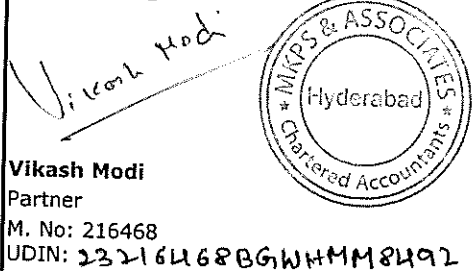 Vikash Modi
MKPS & ASSOCIATES
Hyderabad
* Chartered Accountants *
Vikash Modi
Partner
M. No: 216468
UDIN: 23216468BGWHMM8492